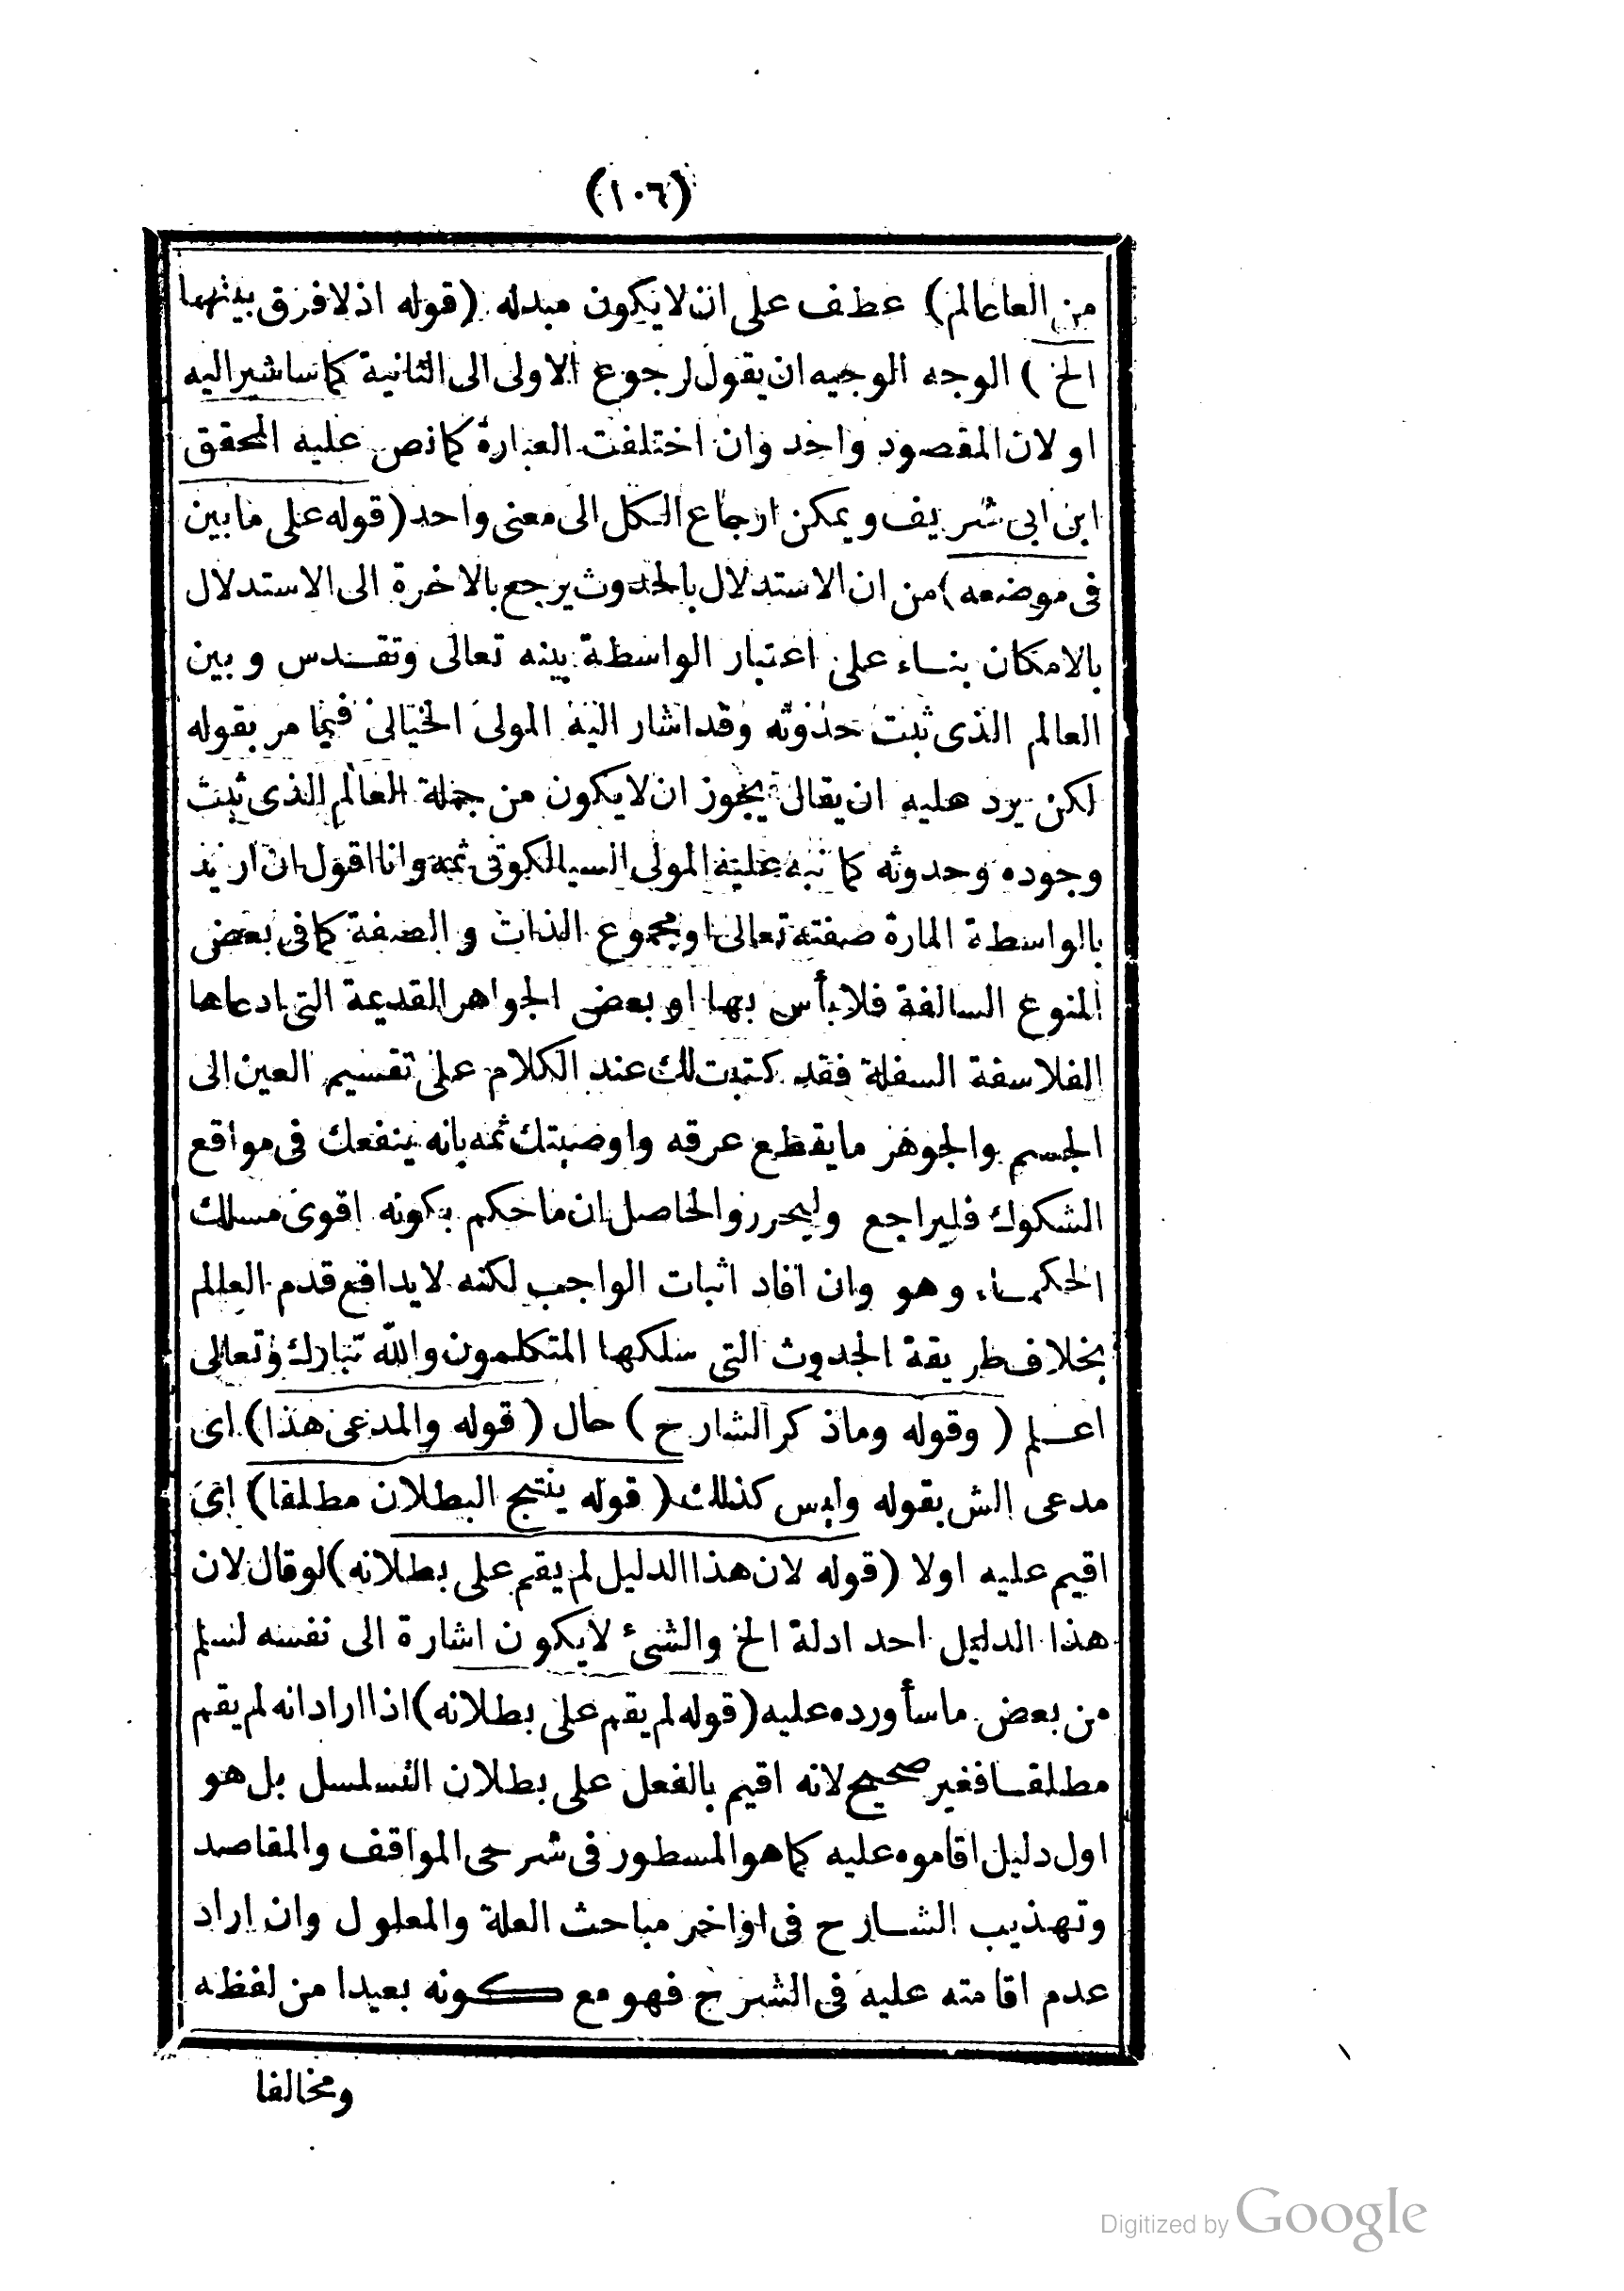 (١٠٦)
من العاعالم) عطف على ان لا يكون مبدله (قوله اذ لا فرق بينهما
الخ) الوجه الوجيه ان يقول لرجوع الاولى الى الثانية كما ساشير اليه
او لان المقصود واحد وان اختلفت العبارة كما نص عليه المحقق
ابن ابى شريف ويمكن ارجاع الكل الى معنى واحد (قوله على ما بين
فى موضعه) من ان الاستدلال بالحدوث يرجع بالاخرة الى الاستدلال
بالامكان بناء على اعتبار الواسطة بينه تعالى وتقدس وبين
العالم الذى ثبت حدوثه وقد اشار اليه المولى الخيالى فيما مر بقوله
لكن يرد عليه ان يقال يجوز ان لا يكون من جملة العالم الذى ثبت
وجوده وحدوثه كما نبه عليه المولى السيالكوتى ثمه وانا اقول ان اريد
بالواسطة المارة صفته تعالى او مجموع الذات والصفة كما فى بعض
المنوع السالفة فلا بأس بها او بعض الجواهر القديمة التى ادعاها
الفلاسفة السفلة فقد كتبت لك عند الكلام على تقسيم العين الى
الجسم والجوهر ما يقطع عرقه واوصيتك ثمه بانه ينفعك فى مواقع
الشكوك فليراجع وليحرر والحاصل ان ما حكم بكونه اقوى مسلك
الحكماء وهو وان افاد اثبات الواجب لكنه لا يدافع قدم العالم
بخلاف طريقة الحدوث التى سلكها المتكلمون والله تبارك وتعالى
اعلم (وقوله وما ذكر الشارح) حال (قوله والمدعى هذا) اى
مدعى الش بقوله وليس كذلك (قوله ينتج البطلان مطلقا) اى
اقيم عليه اولا (قوله لان هذا الدليل لم يقم على بطلانه) لو قال لان
هذا الدليل احد ادلة الخ والشئ لا يكون اشارة الى نفسه لسلم
من بعض ما سأورده عليه (قوله لم يقم على بطلانه) اذا اراد انه لم يقم
مطلقا فغير صحيح لانه اقيم بالفعل على بطلان التسلسل بل هو
اول دليل اقاموه عليه كما هو المسطور فى شرحى المواقف والمقاصد
وتهذيب الشارح فى اواخر مباحث العلة والمعلول وان اراد
عدم اقامته عليه فى الشرح فهو مع كونه بعيدا من لفظه
ومخالفا
Digitized by Google